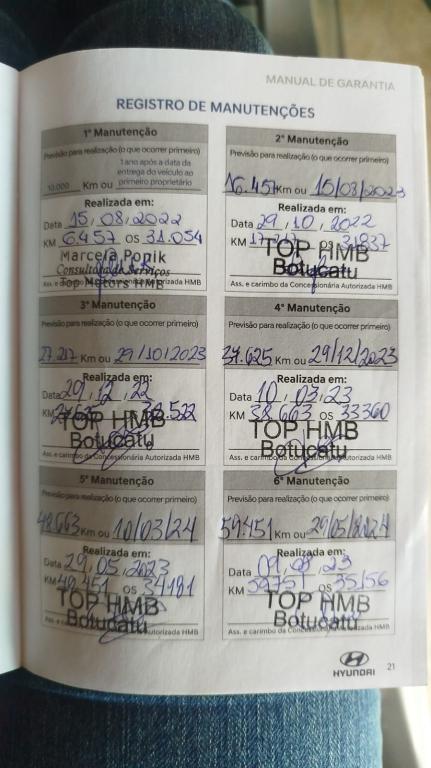 MANUAL DE GARANTIA
REGISTRO DE MANUTENÇÕES
1ª Manutenção
Previsão para realização (o que ocorrer primeiro)
10.000 Km ou 1 ano após a data da entrega do veículo ao primeiro proprietário
Realizada em:
Data 15, 08, 2022
KM 6.457 OS 31.054
Marcela Popik
Consultora de Serviços
Top Motors HMB
Ass. e carimbo da Concessionária Autorizada HMB
2ª Manutenção
Previsão para realização (o que ocorrer primeiro)
16.457 Km ou 15/08/2023
Realizada em:
Data 29, 10, 2022
KM 17.217 OS 31837
TOP HMB
Botucatu
Ass. e carimbo da Concessionária Autorizada HMB
3ª Manutenção
Previsão para realização (o que ocorrer primeiro)
27.217 Km ou 29/10/2023
Realizada em:
Data 29, 12, 22
KM 27.625 OS 32.522
TOP HMB
Botucatu
Ass. e carimbo da Concessionária Autorizada HMB
4ª Manutenção
Previsão para realização (o que ocorrer primeiro)
37.625 Km ou 29/12/2023
Realizada em:
Data 10, 03, 23
KM 38.663 OS 33360
TOP HMB
Botucatu
Ass. e carimbo da Concessionária Autorizada HMB
5ª Manutenção
Previsão para realização (o que ocorrer primeiro)
48.663 Km ou 10/03/24
Realizada em:
Data 29, 05, 2023
KM 49.451 OS 34181
TOP HMB
Botucatu
Ass. e Autorizada HMB
6ª Manutenção
Previsão para realização (o que ocorrer primeiro)
59.451 Km ou 29/05/2024
Realizada em:
Data 09, 08, 23
KM 59751 OS 35156
TOP HMB
Botucatu
Ass. e carimbo da Concessionária Autorizada HMB
HYUNDAI
21